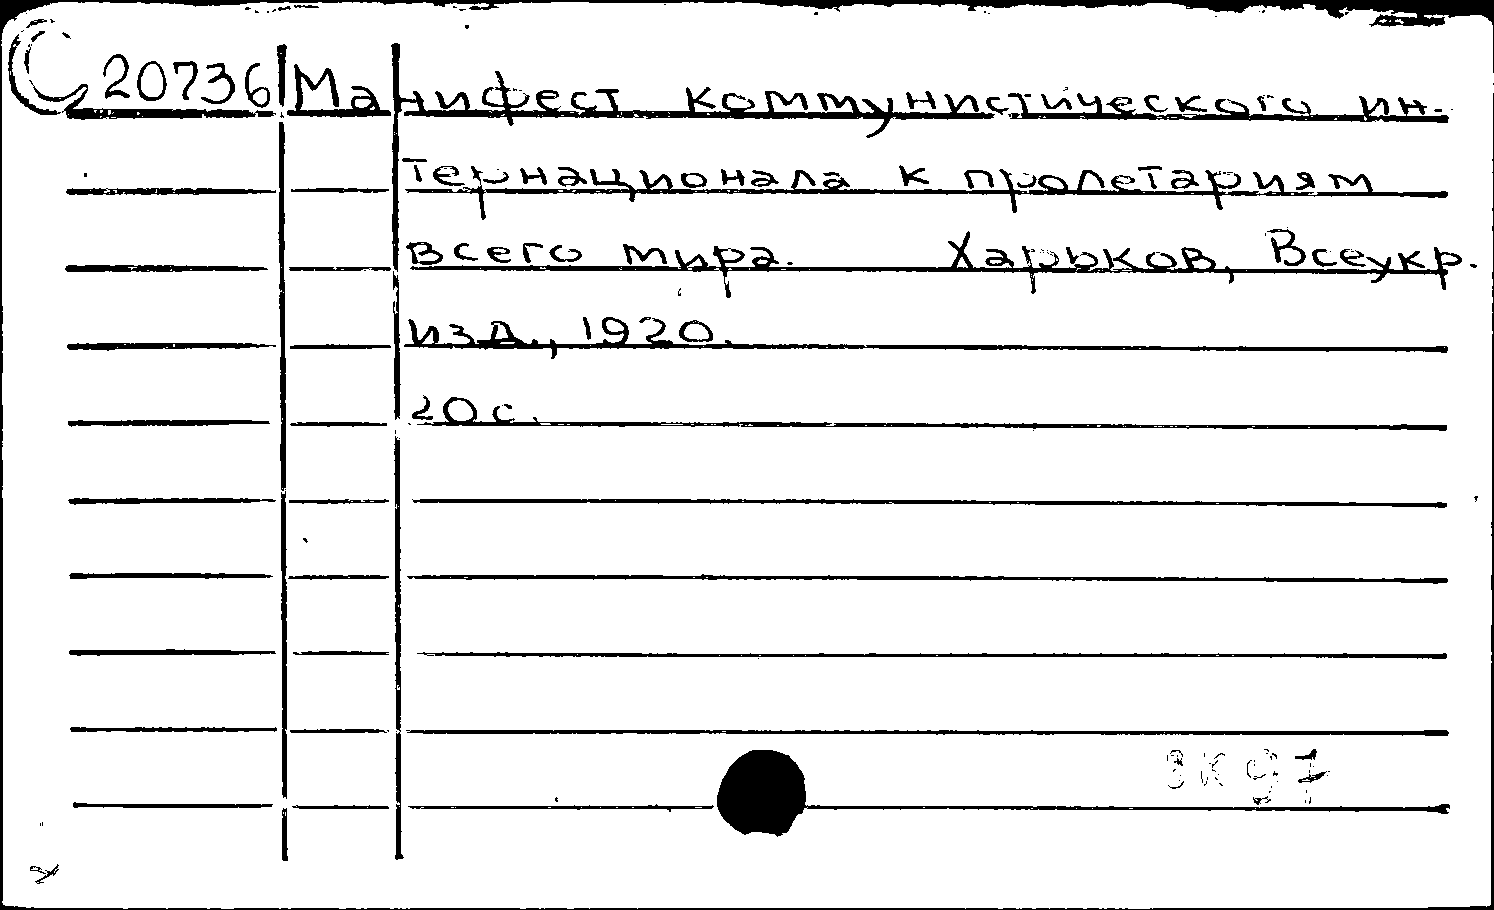 С 20736 Манифест коммунистического ин-
тернационала к пролетариям
всего мира. Харьков, Всеукр.
изд., 1920.
20 с.
3К97